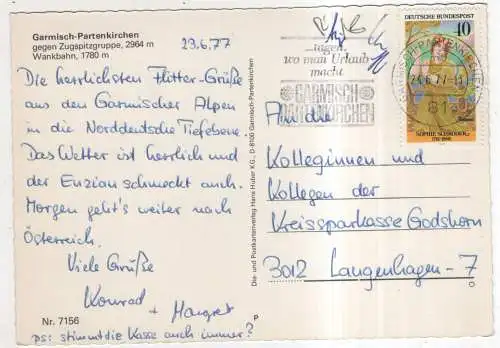 Garmisch-Partenkirchen
gegen Zugspitzgruppe, 2964 m
Wankbahn, 1780 m
23.6.77
Die herrlichsten Flitter-Grüße
aus den Garmischer Alpen
in die Norddeutsche Tiefebene.
Das Wetter ist herrlich und
der Enzian schmeckt auch.
Morgen geht's weiter nach
Österreich.
Viele Grüße
Konrad
+ Margret
Nr. 7156
P
ps: stimmt die Kasse auch immer?
Die- und Postkartenverlag Hans Huber KG., D-8100 Garmisch-Partenkirchen
tagen,
wo man Urlaub
macht
GARMISCH
PARTENKIRCHEN
DEUTSCHE BUNDESPOST
40
GARMISCH-PARTENKIRCHEN
SOPHIE SCHRÖDER
An die
Kolleginnen und
Kollegen der
Kreissparkasse Godshorn
3012 Langenhagen-7